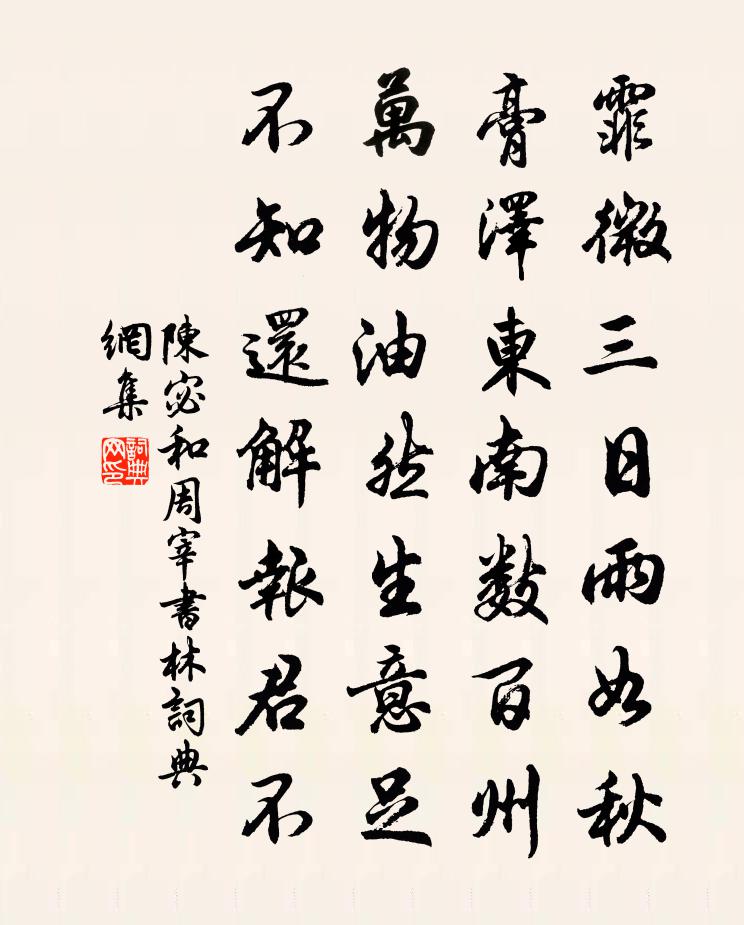 霏微三日雨如秋
膏澤東南數百州
萬物油然生意足
不知還解報君不
陳宓和周宰書林詞典
網集
詞典網印